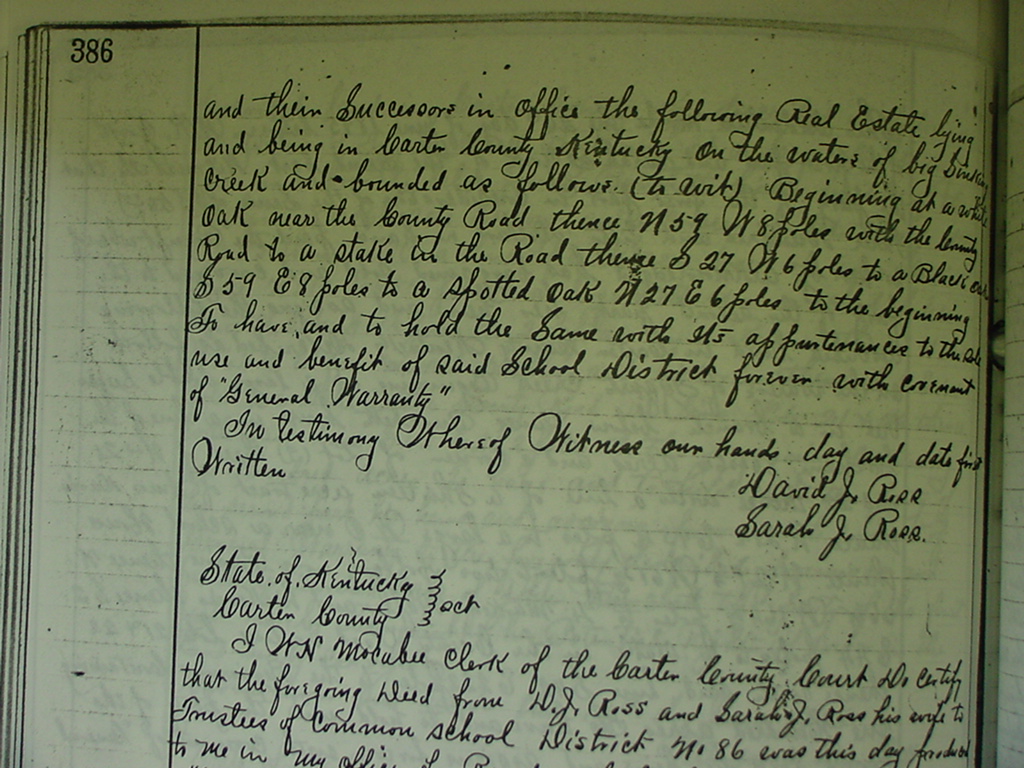 386
and their Successors in office the following Real Estate lying
and being in Carter County Kentucky on the waters of big Sinking
Creek and bounded as follows. (to wit) Beginning at a white
Oak near the County Road thence N 59 W 8 poles with the County
Road to a stake in the Road thence S 27 W 6 poles to a Black oak
S 59 E 8 poles to a spotted oak N 27 E 6 poles to the beginning
To have and to hold the Same with its appurtenances to the sole
use and benefit of said School District forever with covenant
of "General Warranty"
In testimony Whereof Witness our hands day and date first
Written
David J. Ross
Sarah J. Ross.
State of Kentucky
Carter County } sct
I W N McCabee Clerk of the Carter County Court Do certify
that the foregoing Deed from D. J. Ross and Sarah J. Ross his wife to
Trustees of Common school District No 86 was this day produced
to me in my office